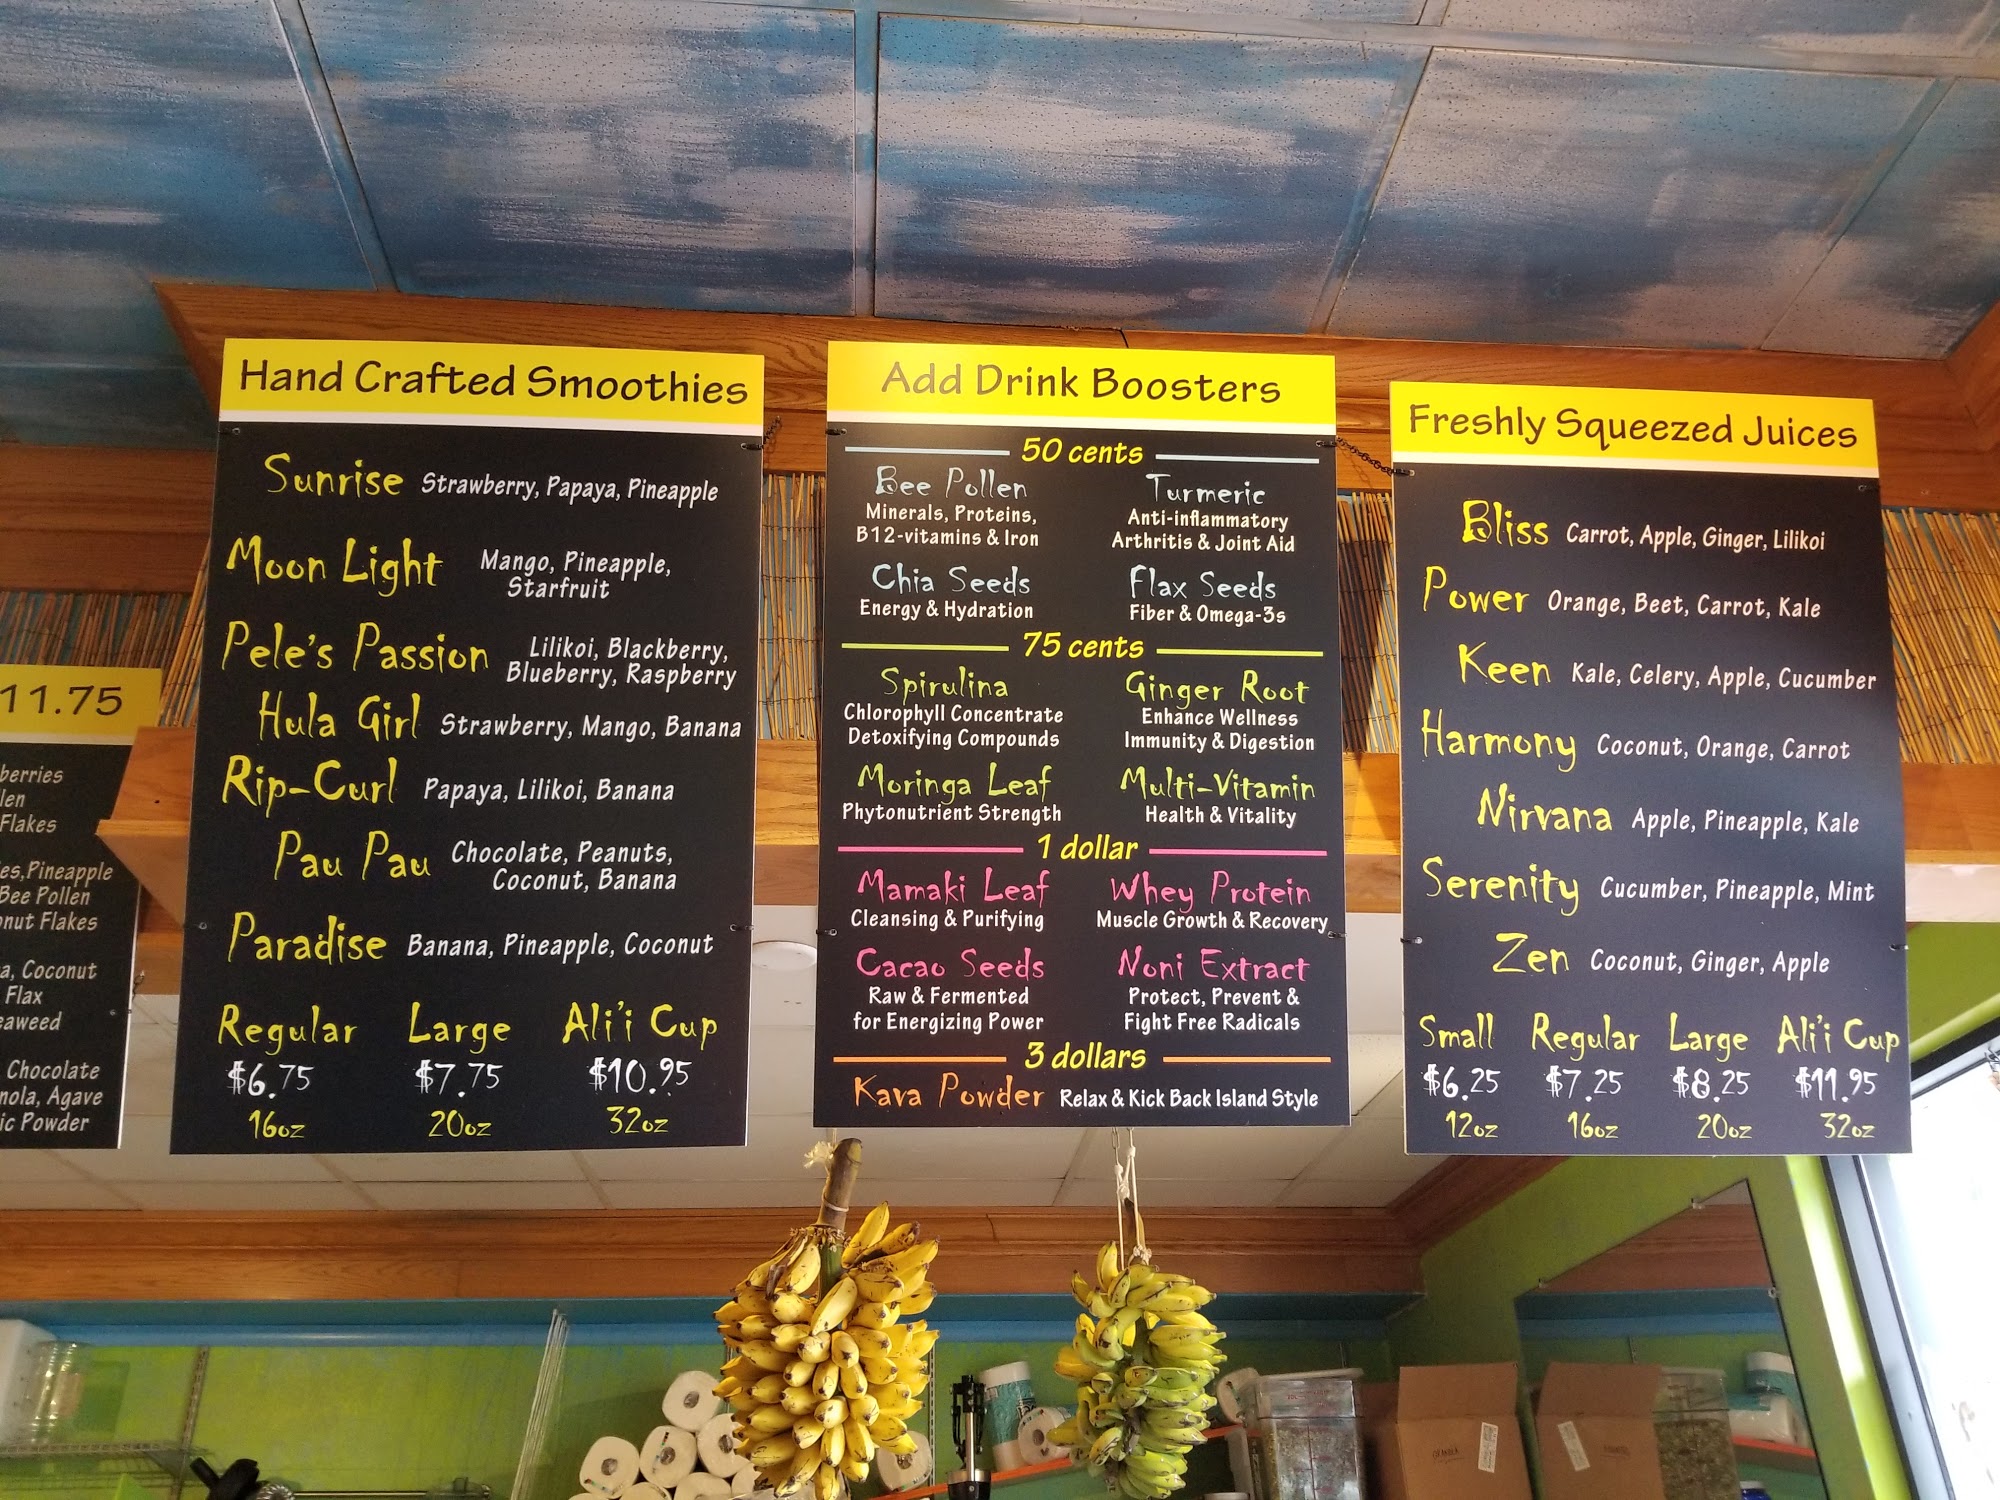 11.75
berries
Flakes
Pineapple
Bee Pollen
Flakes
Coconut
Flax
Chocolate
Agave
Powder
Hand Crafted Smoothies
Sunrise Strawberry, Papaya, Pineapple
Moon Light Mango, Pineapple,
Starfruit
Pele's Passion Lilikoi, Blackberry,
Blueberry, Raspberry
Hula Girl Strawberry, Mango, Banana
Rip-Curl Papaya, Lilikoi, Banana
Pau Pau Chocolate, Peanuts,
Coconut, Banana
Paradise Banana, Pineapple, Coconut
Regular Large Ali'i Cup
$6.75 $7.75 $10.95
16oz 20oz 32oz
Add Drink Boosters
50 cents
Bee Pollen
Minerals, Proteins,
B12-vitamins & Iron
Turmeric
Anti-inflammatory
Arthritis & Joint Aid
Chia Seeds
Energy & Hydration
Flax Seeds
Fiber & Omega-3s
75 cents
Spirulina
Chlorophyll Concentrate
Detoxifying Compounds
Ginger Root
Enhance Wellness
Immunity & Digestion
Moringa Leaf
Phytonutrient Strength
Multi-Vitamin
Health & Vitality
1 dollar
Mamaki Leaf
Cleansing & Purifying
Whey Protein
Muscle Growth & Recovery
Cacao Seeds
Raw & Fermented
for Energizing Power
Noni Extract
Protect, Prevent &
Fight Free Radicals
3 dollars
Kava Powder Relax & Kick Back Island Style
Freshly Squeezed Juices
Bliss Carrot, Apple, Ginger, Lilikoi
Power Orange, Beet, Carrot, Kale
Keen Kale, Celery, Apple, Cucumber
Harmony Coconut, Orange, Carrot
Nirvana Apple, Pineapple, Kale
Serenity Cucumber, Pineapple, Mint
Zen Coconut, Ginger, Apple
Small Regular Large Ali'i Cup
$6.25 $7.25 $8.25 $11.95
12oz 16oz 20oz 32oz